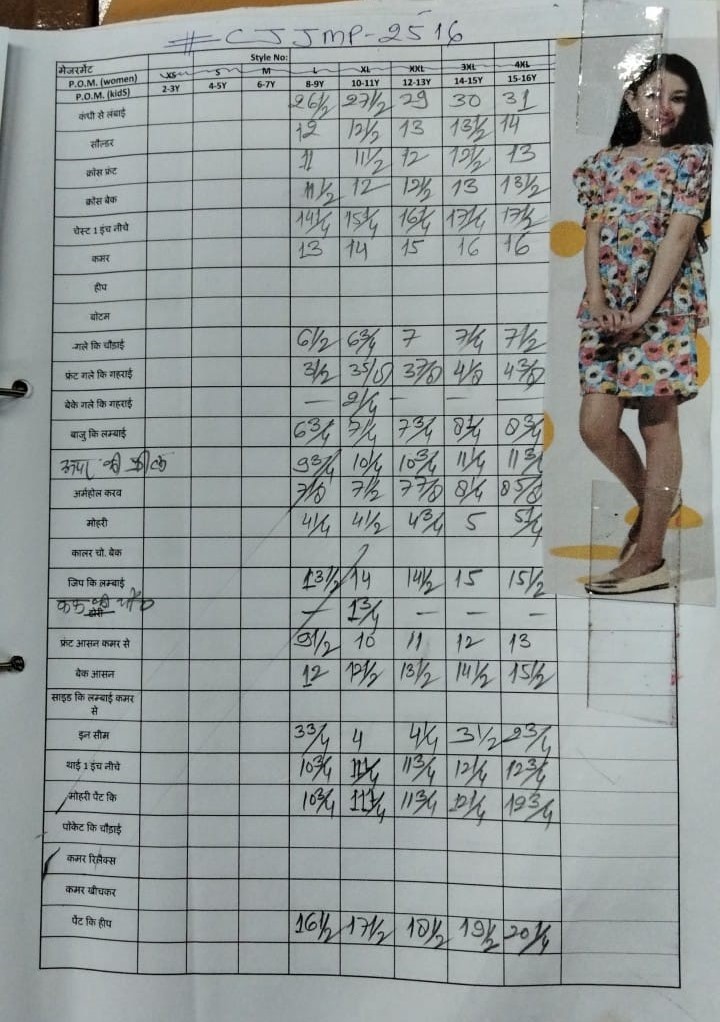 # CJJMP-2516
Style No:
मेजरमेंट
P.O.M. (women) XS S M L XL XXL 3XL 4XL
P.O.M. (kidS) 2-3Y 4-5Y 6-7Y 8-9Y 10-11Y 12-13Y 14-15Y 15-16Y
कंधी से लंबाई 26½ 27½ 29 30 31
सौल्डर 12 12½ 13 13½ 14
क्रोस फ्रंट 11 11½ 12 12½ 13
क्रोस बेक 11½ 12 12½ 13 13½
चेस्ट 1 इंच नीचे 14¼ 15¼ 16¼ 17¼ 17½
कमर 13 14 15 16 16
हीप
बोटम
-गले कि चौडाई 6½ 6¾ 7 7¼ 7½
फ्रंट गले कि गहराई 3½ 35/8 37/8 4/8 43/8
बेके गले कि गहराई — 2¼ — —
बाजु कि लम्बाई 6¾ 7¼ 7¾ 8¼ 8¾
की 9¾ 10¼ 10¾ 11¼ 11¾
अर्महोल करव 7/8 7½ 77/8 8¼ 85/8
मोहरी 4¼ 4½ 4¾ 5 5¼
कालर चो. बेक
जिप कि लम्बाई 13½ 14 14½ 15 15½
कफ की — 1¾ — — —
फ्रंट आसन कमर से 9½ 10 11 12 13
बेक आसन 12 12½ 13½ 14½ 15½
साइड कि लम्बाई कमर
से
इन सीम 3¾ 4 4¼ 3½ 2¾
थाई 1 इंच नीचे 10¾ 11¼ 11¾ 12¼ 12¾
मोहरी पैंट कि 10¾ 11¼ 11¾ 12¼ 12¾
पॉकेट कि चौडाई
कमर रिलैक्स
कमर खीचकर
पैंट कि हीप 16½ 17½ 18½ 19½ 20¼